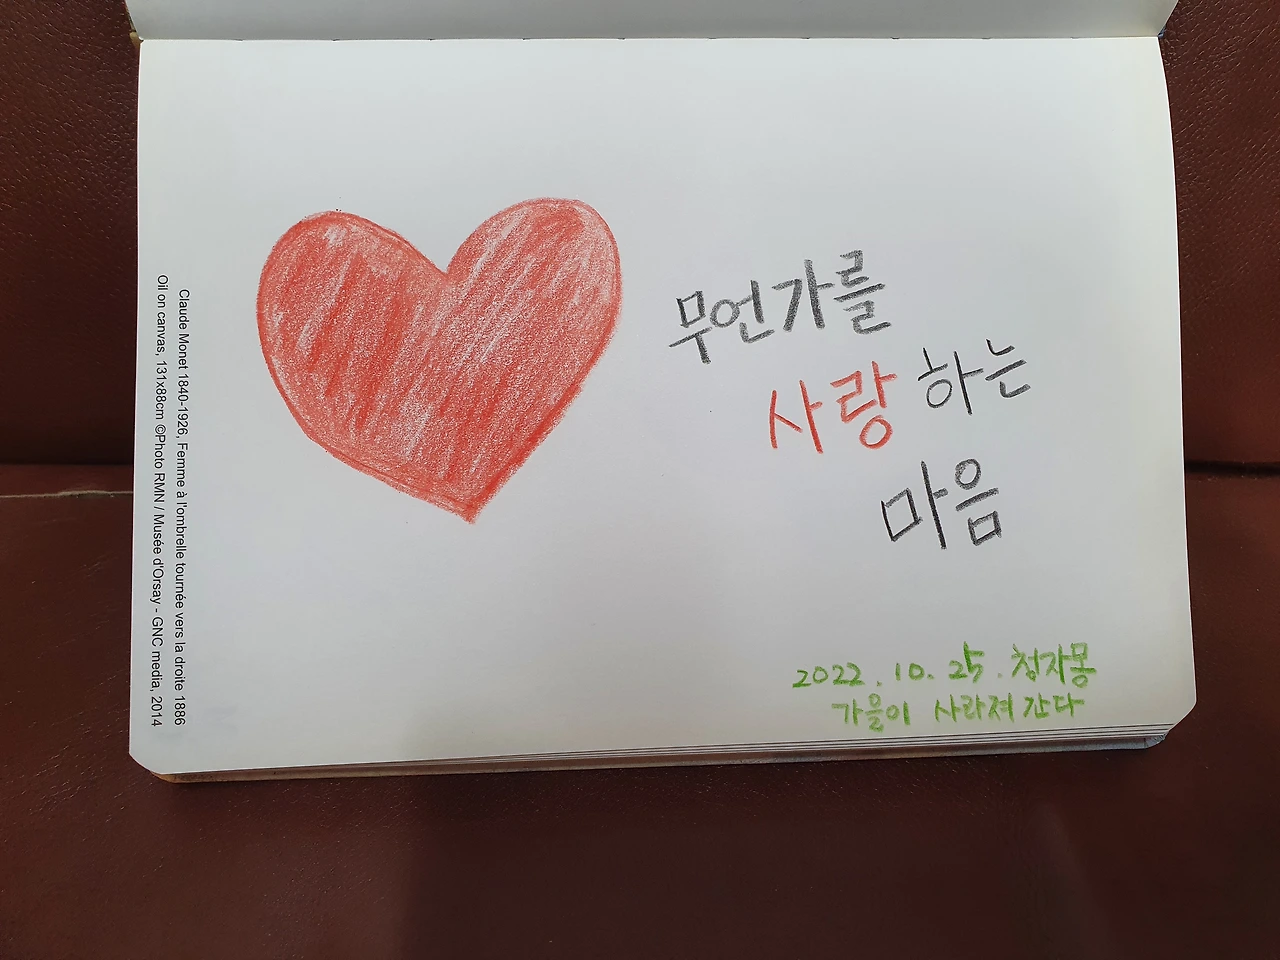 Claude Monet 1840-1926, Femme à l'ombrelle tournée vers la droite 1886
Oil on canvas, 131x88cm ©Photo RMN / Musée d'Orsay - GNC media, 2014
무언가를
사랑하는
마음
2022. 10. 25. 청자몽
가을이 사라져 간다